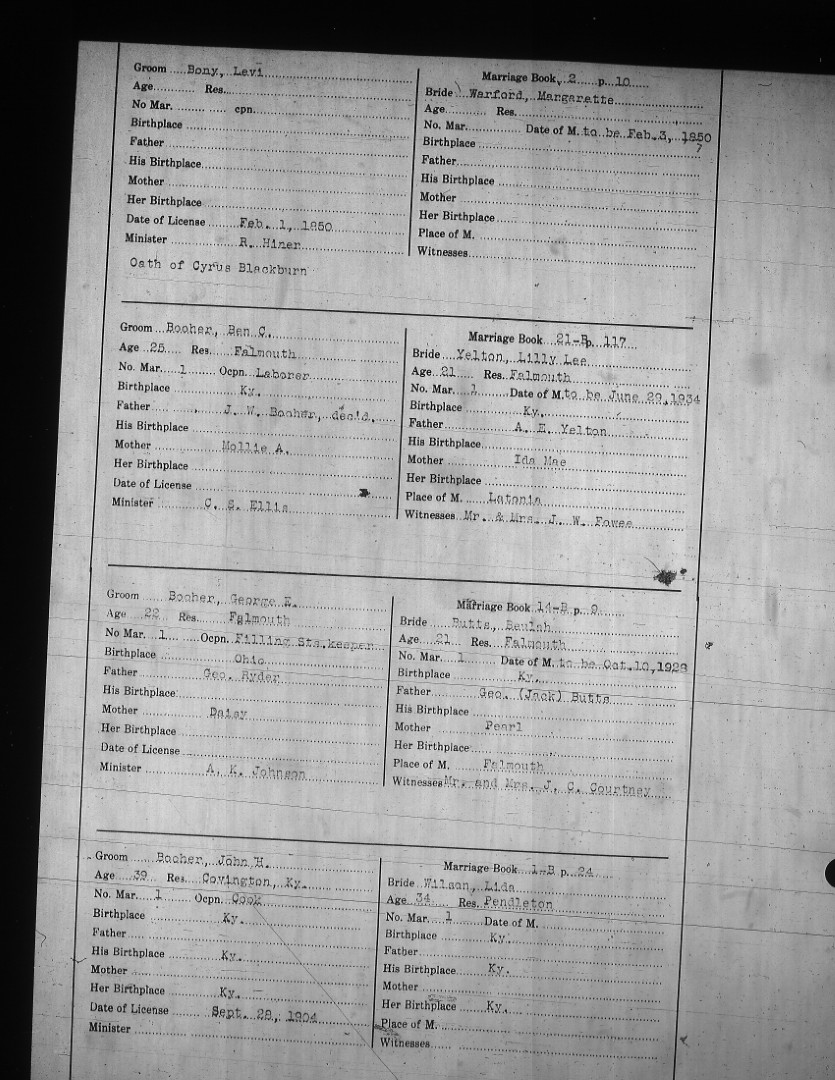 Groom Bony, Levi
Age Res.
No Mar. cpn.
Birthplace
Father
His Birthplace
Mother
Her Birthplace
Date of License Feb. 1, 1850
Minister R. Hiner
Oath of Cyrus Blackburn
Marriage Book 2 p. 10
Bride Warford, Margarette
Age Res.
No. Mar. Date of M. to be Feb. 3, 1850
?
Birthplace
Father
His Birthplace
Mother
Her Birthplace
Place of M.
Witnesses
Groom Booher, Ben C.
Age 25 Res. Falmouth
No. Mar. 1 Ocpn. Laborer
Birthplace Ky.
Father J. W. Booher, dec'd.
His Birthplace
Mother Mollie A.
Her Birthplace
Date of License
Minister C. S. Ellis
Marriage Book 21-B p. 117
Bride Yelton, Lilly Lee
Age 21 Res. Falmouth
No. Mar. 1 Date of M. to be June 29, 1934
Birthplace Ky.
Father A. E. Yelton
His Birthplace
Mother Ida Mae
Her Birthplace
Place of M. Latonia
Witnesses Mr. & Mrs. J. W. Fowee
Groom Booher, George E.
Age 22 Res. Falmouth
No Mar. 1 Ocpn. Filling Sta. keeper
Birthplace Ohio
Father Geo. Ryder
His Birthplace
Mother Daisy
Her Birthplace
Date of License
Minister A. K. Johnson
Marriage Book 14-B p. 9
Bride Butts, Beulah
Age 21 Res. Falmouth
No. Mar. 1 Date of M. to be Oct. 10, 1928
Birthplace Ky.
Father Geo. (Jack) Butts
His Birthplace
Mother Pearl
Her Birthplace
Place of M. Falmouth
Witnesses Mr. and Mrs. J. C. Courtney
Groom Booher, John H.
Age 39 Res. Covington, Ky.
No. Mar. 1 Ocpn. Cook
Birthplace Ky.
Father
His Birthplace Ky.
Mother
Her Birthplace Ky.
Date of License Sept. 28, 1904
Minister
Marriage Book 1-B p. 24
Bride Wilson, Lida
Age 34 Res. Pendleton
No. Mar. 1 Date of M.
Birthplace Ky.
Father
His Birthplace Ky.
Mother
Her Birthplace Ky.
Place of M.
Witnesses